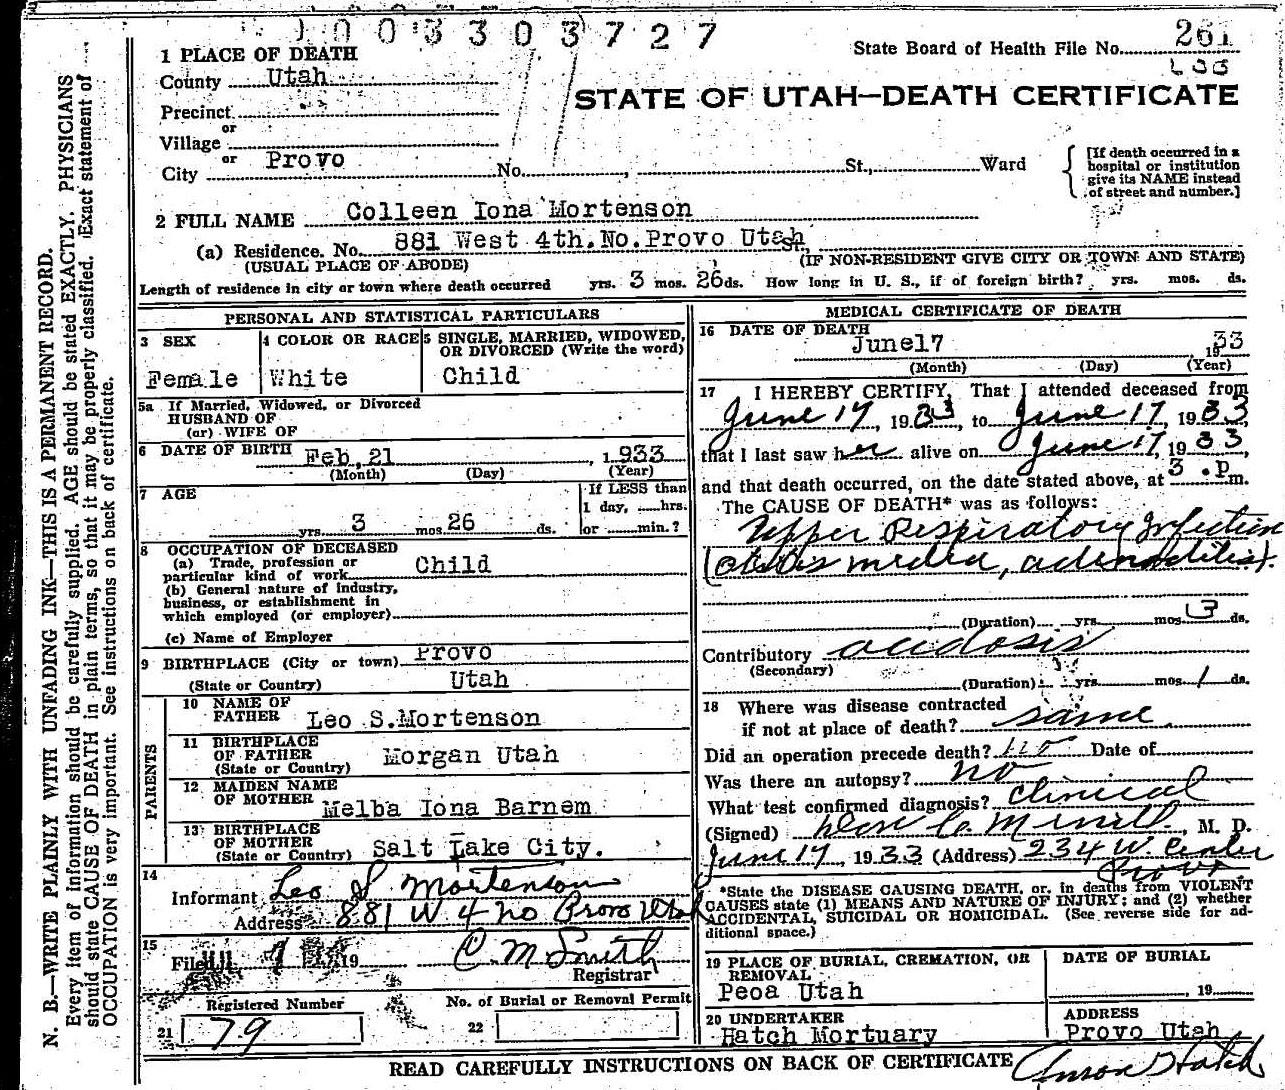 1003303727
State Board of Health File No. 261
1 PLACE OF DEATH
County Utah
STATE OF UTAH—DEATH CERTIFICATE
Precinct
or
Village
or
City Provo No. , St., Ward
[If death occurred in a
hospital or institution
give its NAME instead
of street and number.]
2 FULL NAME Colleen Iona Mortenson
(a) Residence. No. 881 West 4th.No.Provo Utah
(USUAL PLACE OF ABODE) (IF NON-RESIDENT GIVE CITY OR TOWN AND STATE)
Length of residence in city or town where death occurred yrs. 3 mos. 26 ds. How long in U. S., if of foreign birth? yrs. mos. ds.
PERSONAL AND STATISTICAL PARTICULARS
3 SEX 4 COLOR OR RACE 5 SINGLE, MARRIED, WIDOWED,
OR DIVORCED (Write the word)
Female White Child
5a If Married, Widowed, or Divorced
HUSBAND OF
(or) WIFE OF
6 DATE OF BIRTH Feb, 21 , 1933
(Month) (Day) (Year)
7 AGE If LESS than
1 day, ......hrs.
yrs. 3 mos. 26 ds. or ......min.?
8 OCCUPATION OF DECEASED
(a) Trade, profession or
particular kind of work Child
(b) General nature of industry,
business, or establishment in
which employed (or employer)
(c) Name of Employer
9 BIRTHPLACE (City or town) Provo
(State or Country) Utah
PARENTS
10 NAME OF
FATHER Leo S.Mortenson
11 BIRTHPLACE
OF FATHER Morgan Utah
(State or Country)
12 MAIDEN NAME
OF MOTHER Melba Iona Barnem
13 BIRTHPLACE
OF MOTHER
(State or Country) Salt Lake City.
14
Informant Leo S Mortenson
Address 881 W 4 no Provo Utah
15
Filed 19 C. M Smith
Registrar
Registered Number No. of Burial or Removal Permit
21 79 22
MEDICAL CERTIFICATE OF DEATH
16 DATE OF DEATH
June17 1933
(Month) (Day) (Year)
17 I HEREBY CERTIFY, That I attended deceased from
June 17, 1933, to June 17, 1933
that I last saw her alive on June 17, 1933,
and that death occurred, on the date stated above, at 3 . p m.
The CAUSE OF DEATH* was as follows:
Upper Respiratory Infection
(Otitis media, adenoiditis).
(Duration) yrs. mos. 3 ds.
Contributory acidosis
(Secondary)
(Duration) yrs. mos. 1 ds.
18 Where was disease contracted
if not at place of death? same
Did an operation precede death? no Date of
Was there an autopsy? no
What test confirmed diagnosis? Clinical
(Signed) Merrill, M. D.
June 17, 1933 (Address) 234 W. Center
Provo
*State the DISEASE CAUSING DEATH, or, in deaths from VIOLENT
CAUSES state (1) MEANS AND NATURE OF INJURY: and (2) whether
ACCIDENTAL, SUICIDAL OR HOMICIDAL. (See reverse side for ad-
ditional space.)
19 PLACE OF BURIAL, CREMATION, OR
REMOVAL
Peoa Utah
DATE OF BURIAL
, 19
20 UNDERTAKER
Hatch Mortuary
ADDRESS
Provo Utah
READ CAREFULLY INSTRUCTIONS ON BACK OF CERTIFICATE
N. B.—WRITE PLAINLY WITH UNFADING INK—THIS IS A PERMANENT RECORD.
Every item of information should be carefully supplied. AGE should be stated EXACTLY. PHYSICIANS
should state CAUSE OF DEATH in plain terms, so that it may be properly classified. Exact statement of
OCCUPATION is very important. See instructions on back of certificate.